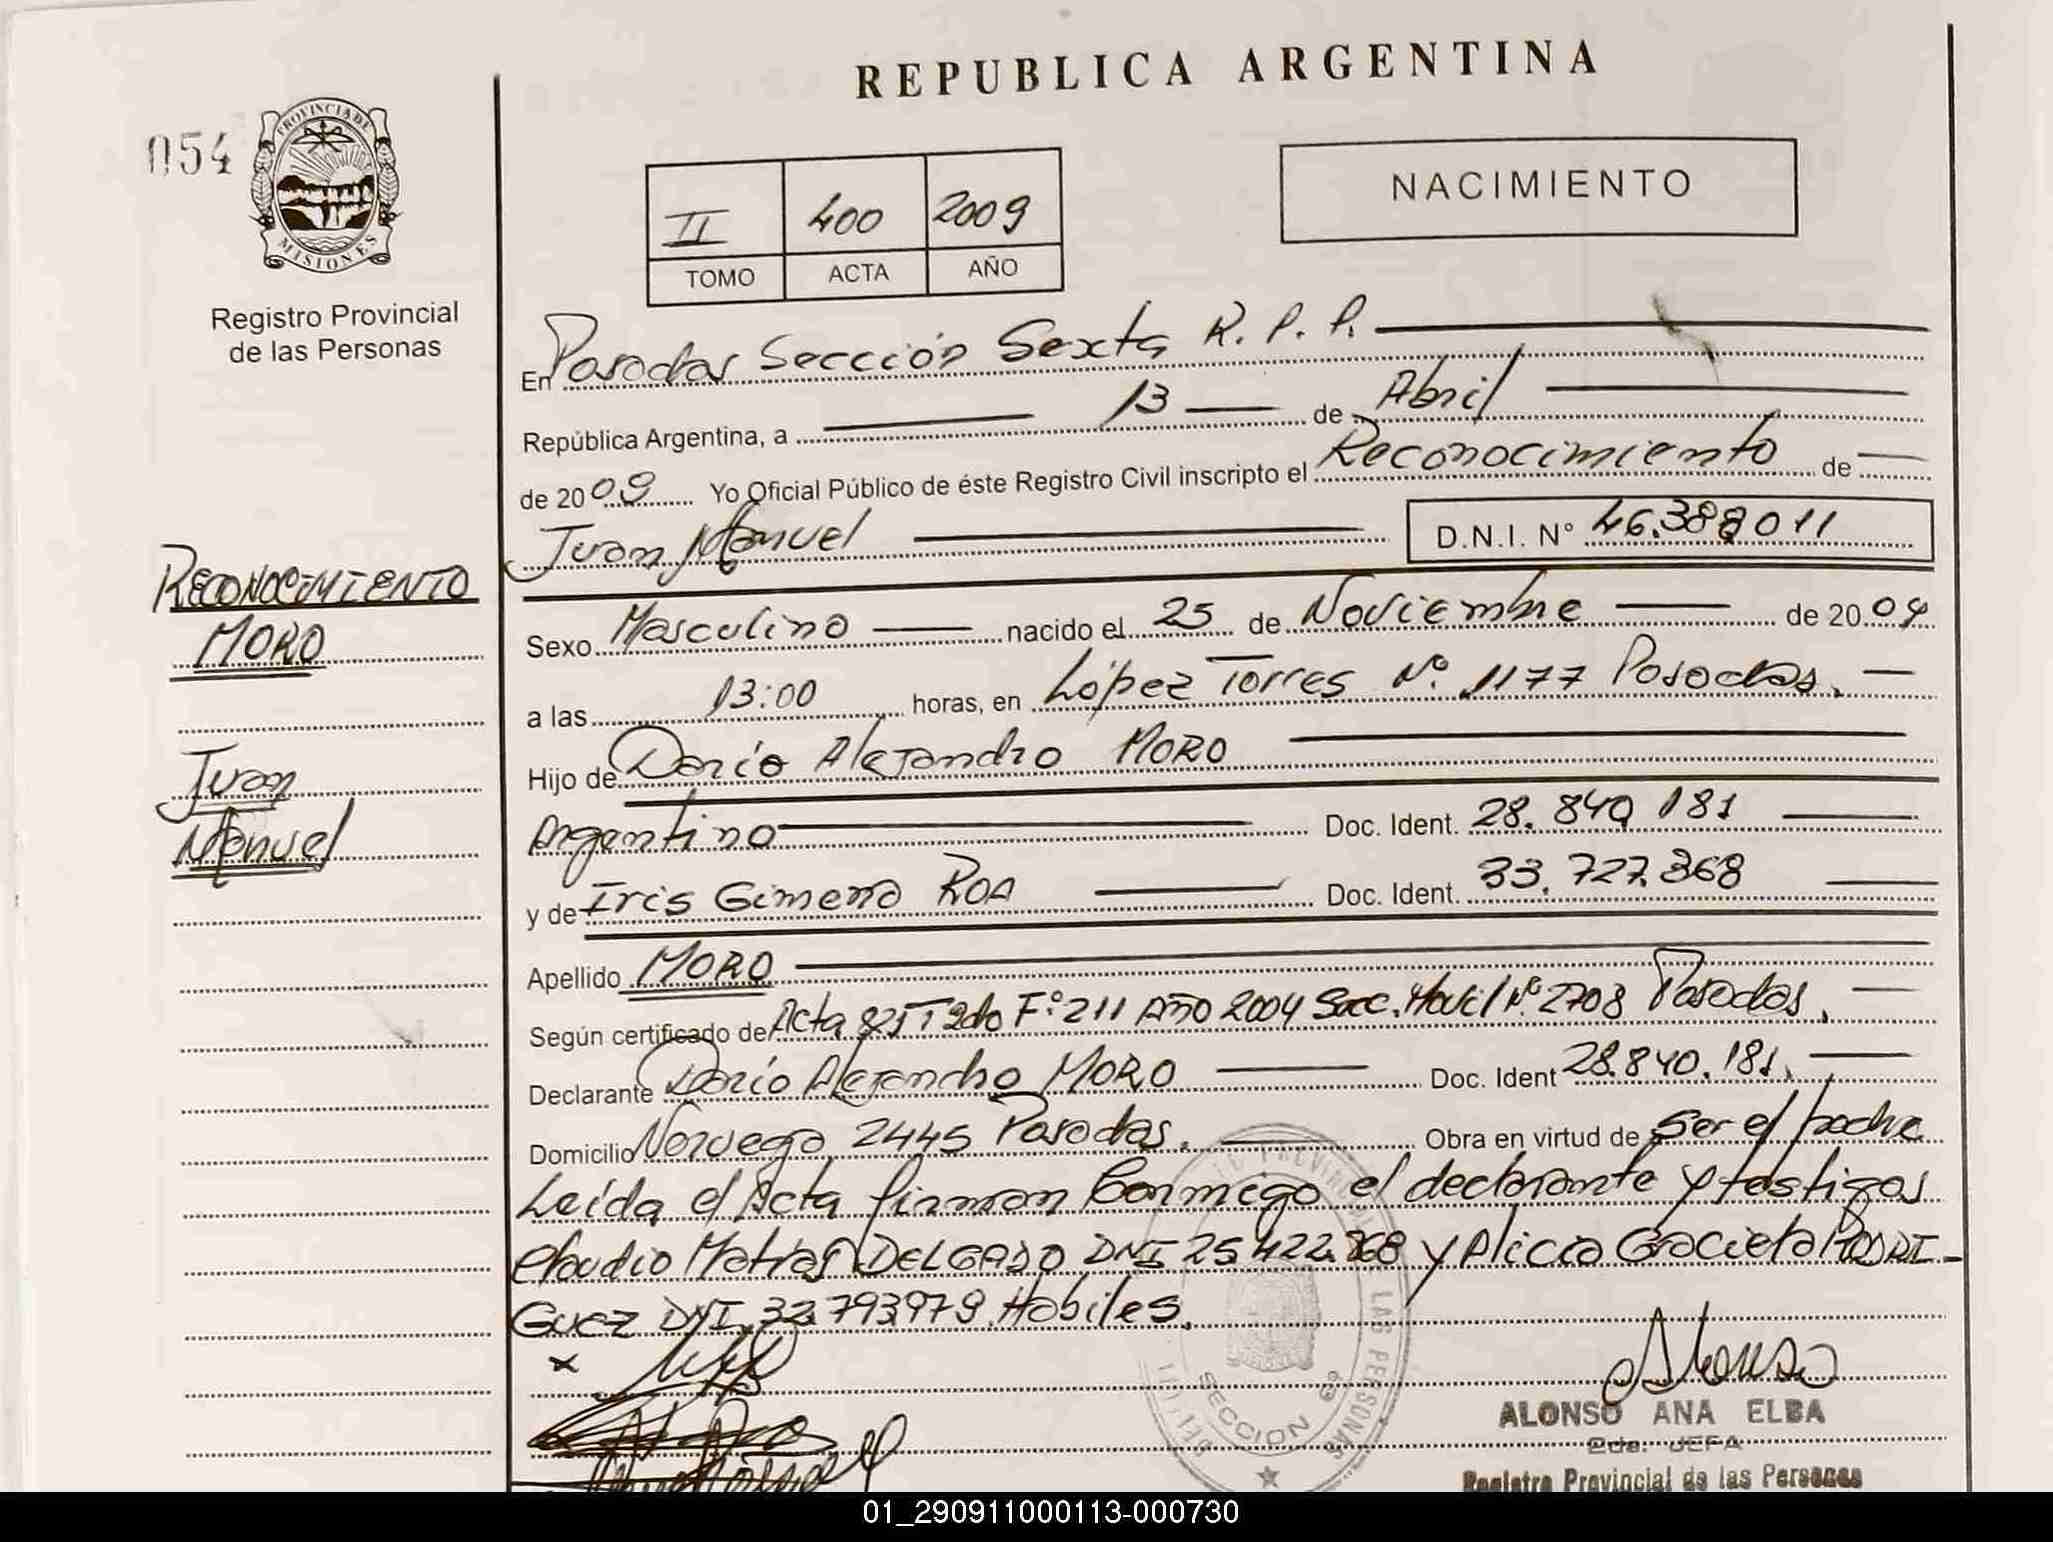 REPUBLICA ARGENTINA
054
PROVINCIA DE
MISIONES
NACIMIENTO
II 400 2009
TOMO ACTA AÑO
Registro Provincial
de las Personas
En Posadas Sección Sexta R. P. P.
República Argentina, a 13 de Abril
de 2009 Yo Oficial Público de éste Registro Civil inscripto el Reconocimiento de
Juan Manuel D.N.I. N° 46.388011
RECONOCIMIENTO
MORO
Juan
Manuel
Sexo Masculino nacido el 25 de Noviembre de 2004
a las 13:00 horas, en López Torres N° 1177 Posadas.
Hijo de Darío Alejandro MORO
Argentino Doc. Ident. 28.840 181
y de Iris Gimena ROA Doc. Ident. 33.727.368
Apellido MORO
Según certificado de Acta 821 T 2do F° 211 Año 2004 Secc. Movil N° 2708 Posadas.
Declarante Darío Alejandro MORO Doc. Ident 28.840.181.
Domicilio Noruega 2445 Posadas. Obra en virtud de Ser el padre
Leída el Acta firman Conmigo el declarante y testigos
Claudio Matías DELGADO DNI 25 422.368 y Alicia Graciela RODRI-
GUEZ DNI 32.793979. Habiles.
x
SECCION 6ª
LAS PERSONAS
Alonso
ALONSO ANA ELBA
JEFA
Registro Provincial de las Personas
01_290911000113-000730